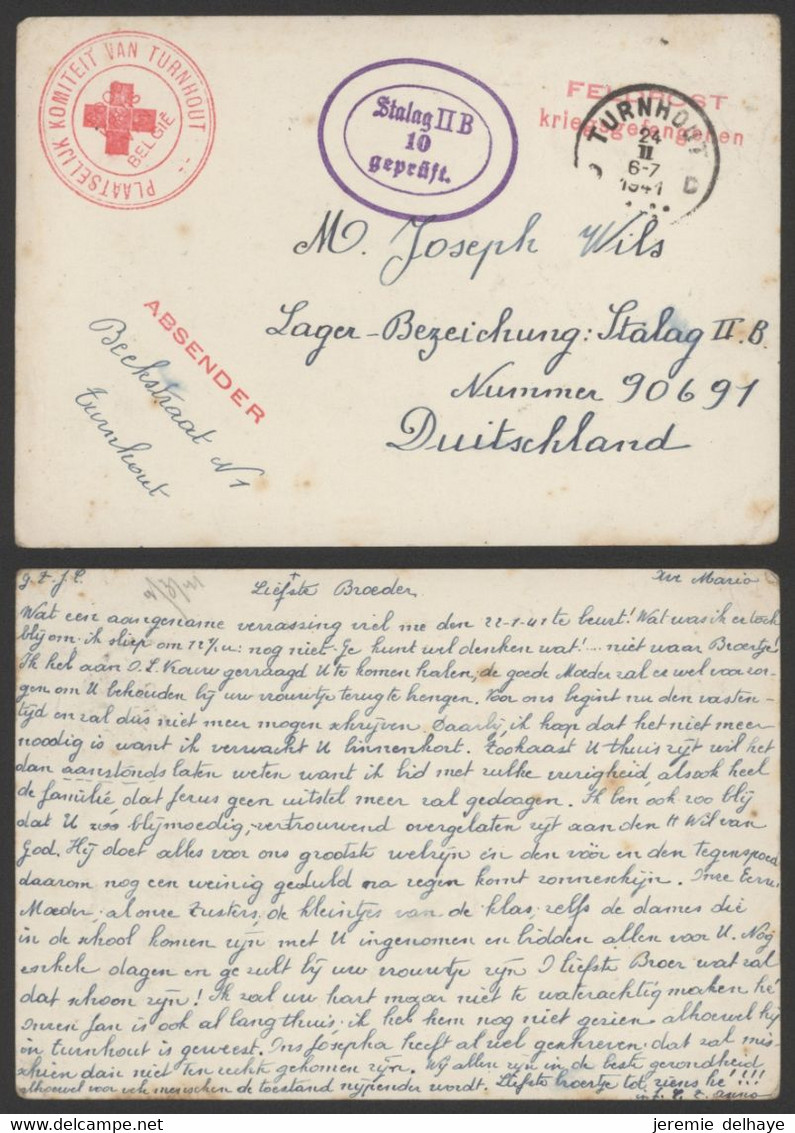 PLAATSELIJK KOMITEIT VAN TURNHOUT
BELGIË
Stalag II B
10
geprüft.
FELDPOST
kriegsgefangenen
TURNHOUT
24
II
6-7
1941
D
M. Joseph Wils
Lager-Bezeichung: Stalag II.B.
Nummer 90691
Duitschland
ABSENDER
Beekstraat N 1
Turnhout
g. z. J. C.
Liefste Broeder,
Maria
Wat een aangename verrassing viel me den 22-1-41 te beurt! Wat was ik er toch
blij om. ik sliep om 12 u: nog niet. Je kunt wel denken wat!.... niet waar Broertje!
Ik heb aan O.L. Vrouw gevraagd U te komen halen, de goede Moeder zal er wel voor zor-
gen om U behouden bij uw vrouwtje terug te brengen. Voor ons begint nu den vasten-
tijd en zal dus niet meer mogen schrijven. Daarbij, ik hoop dat het niet meer
noodig is want ik verwacht U binnenkort. Zoohaast U thuis zijt wil het
dan aanstonds laten weten want ik bid met zulke vurigheid, alsook heel
de familie, dat Jesus geen uitstel meer zal gedoogen. Ik ben ook zoo blij
dat U zoo blijmoedig, vertrouwend overgelaten zijt aan den H Wil van
God. Hij doet alles voor ons grootste welzijn in den vóór en den tegenspoed
daarom nog een weinig geduld na regen komt zonneschijn. Onze Eerw
Moeder, al onze Zusters, de kleintjes van de klas, zelfs de dames die
in de school komen zijn met U ingenomen en bidden allen voor U. Nog
enkele dagen en ge zult bij uw vrouwtje zijn O liefste Broer wat zal
dat schoon zijn! Ik zal uw hart maar niet te waterachtig maken hé
Onzen Jan is ook al lang thuis, ik heb hem nog niet gezien alhoewel hij
in turnhout is geweest. Ons Josepha heeft al wel geschreven dat zal mis-
schien dan niet ten rechte gekomen zijn. Wij allen zijn in de beste gezondheid
alhoewel voor vele menschen de toestand nijpender wordt. Liefste broertje tot ziens hé!!!
jeremie delhaye